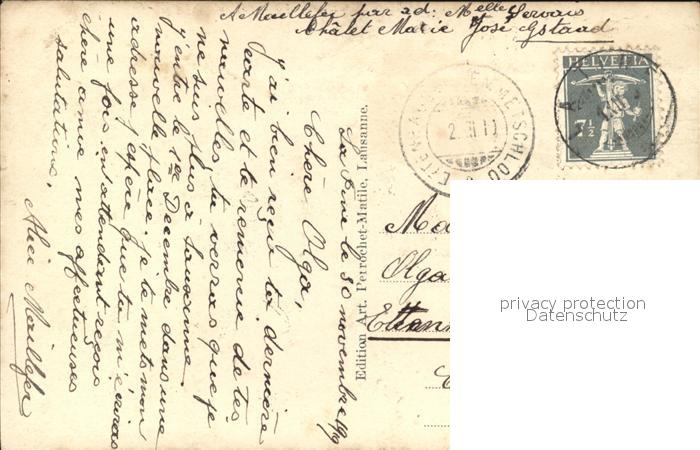 A Maillefer par ad: Melles Servais
Châlet Marie José Gstaad
HELVETIA
7½
La Sine le 30 novembre 1919
Chère Olga,
J'ai bien reçu ta dernière
carte et te remercie de tes
nouvelles tu verras que je
ne suis plus à Lausanne.
J'entre le 1er Decembre dans une
nouvelle place. je te mets mon
adresse j'espère que tu m'écriras
une fois en attendant reçois
chère amie mes affectueuses
salutations.
Alice Maillefer
Edition Art. Perrochet-Matile, Lausanne.
Olga
privacy protection
Datenschutz